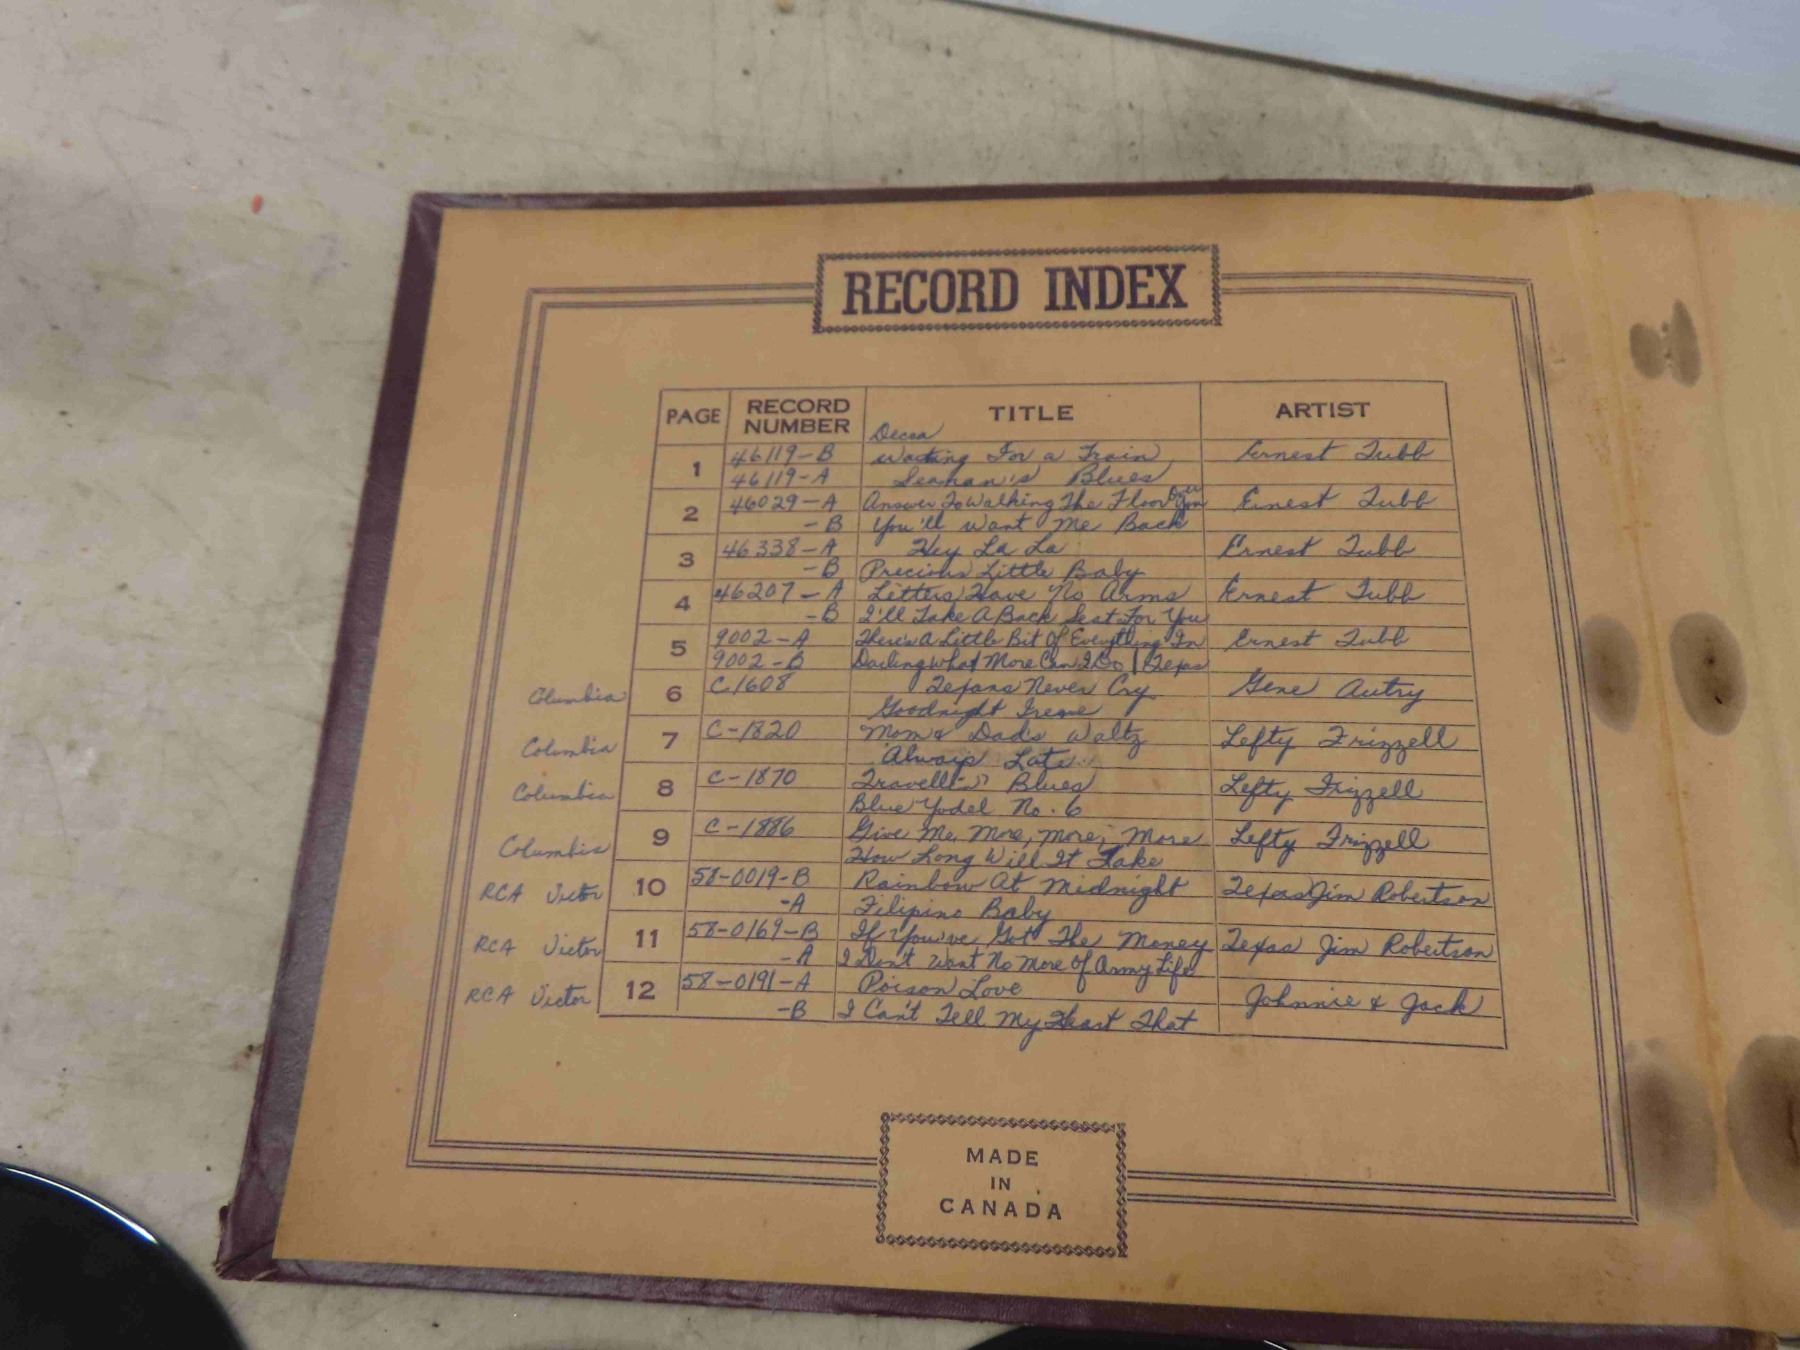 RECORD INDEX
PAGE RECORD NUMBER TITLE ARTIST
Decca
1 46119-B Waiting For a Train Ernest Tubb
46119-A Seaman's Blues
2 46029-A Answer To Walking The Floor Over You Ernest Tubb
-B You'll Want Me Back
3 46338-A Hey La La Ernest Tubb
-B Precious Little Baby
4 46207-A Letters Have No Arms Ernest Tubb
-B I'll Take A Back Seat For You
5 9002-A There's A Little Bit Of Everything In Ernest Tubb
9002-B Darling What More Can I Do | Texas
Columbia 6 C1608 Texans Never Cry Gene Autry
Goodnight Irene
Columbia 7 C-1820 Mom & Dad's Waltz Lefty Frizzell
Always Late
Columbia 8 C-1870 Travellin' Blues Lefty Frizzell
Blue Yodel No. 6
Columbia 9 C-1886 Give Me More, More, More Lefty Frizzell
How Long Will It Take
RCA Victor 10 58-0019-B Rainbow At Midnight Texas Jim Robertson
-A Filipino Baby
RCA Victor 11 58-0169-B If You've Got The Money Texas Jim Robertson
-A I Don't Want No More Of Army Life
RCA Victor 12 58-0191-A Poison Love Johnnie & Jack
-B I Can't Tell My Heart That
MADE
IN
CANADA